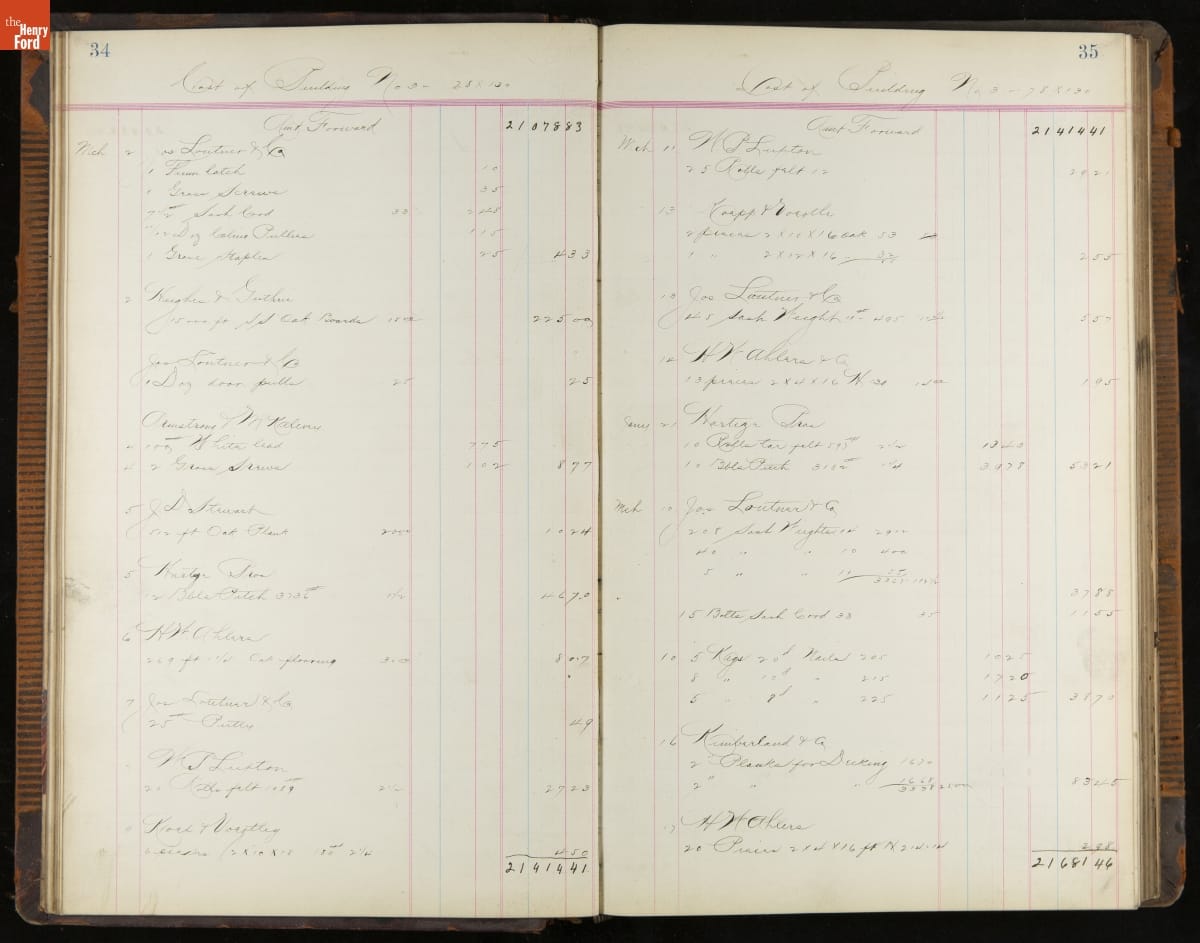 the
Henry
Ford
34
Cost of Building No 3 - 28 x 130
Amt Forward 21078 83
Mch 2 Jos Loutner & Co
1 latch 10
1 Gross Screws 35
Sash Cord 33 248
Doz Pullers 115
1 Gross Staples 25 4 33
2 Hughes & Guthrie
15000 ft Oak Boards 1500 225 00
Jos Loutner & Co
1 Doz door pulls 25 25
Armstrong & McKelvey
4 100# White lead 775
4 2 Gross Screws 102 8 77
5 J D Stewart
512 ft Oak Plank 2000 10 24
5 Hartge Bros
12 Bbls Pitch 3736# 1 1/4 46 70
6 H W Ahlers
269 ft 1 1/4 Oak flooring 3000 8 07
7 Jos Loutner & Co
25# Putty 49
W P Lupton
20 Rolls felt 1089# 2 1/2 27 23
Koch &
2 x 10 x 18 180# 2 1/2 4 50
21414 41
35
Cost of Building No 3 - 78 x 130
Amt Forward 21414 41
Mch 11 W P Lupton
25 Rolls felt 12 29 21
13
2 pieces 2 x 12 x 16 oak 53
1 " 2 x 12 x 16 - 32 2 55
13 Jos Loutner & Co
45 Sash Weight 11# 495 5 57
14 H W Ahlers & Co
13 pieces 2 x 4 x 16 H 130 1500 1 95
21 Hartge Bros
10 Rolls tar felt 597# 2 1/4 1343
10 Bbls Pitch 3182# 1 1/4 3978 53 21
Mch 10 Jos Loutner & Co
208 Sash Weights 14 2912
40 " " 10 400
5 " " 11 55
3367 37 88
15 Bolts Sash Cord 33 35 11 55
10 5 Kegs 20d Nails 205 1025
8 " 10d " 215 1720
5 " 8d " 225 1125 38 70
16 Kimberland & Co
2 Planks for Decking 1670
2 " " " 1668
3338 2500 83 45
17 H W Ahlers
20 Pieces 2 x 4 x 16 ft H 214 14 2 98
21681 46